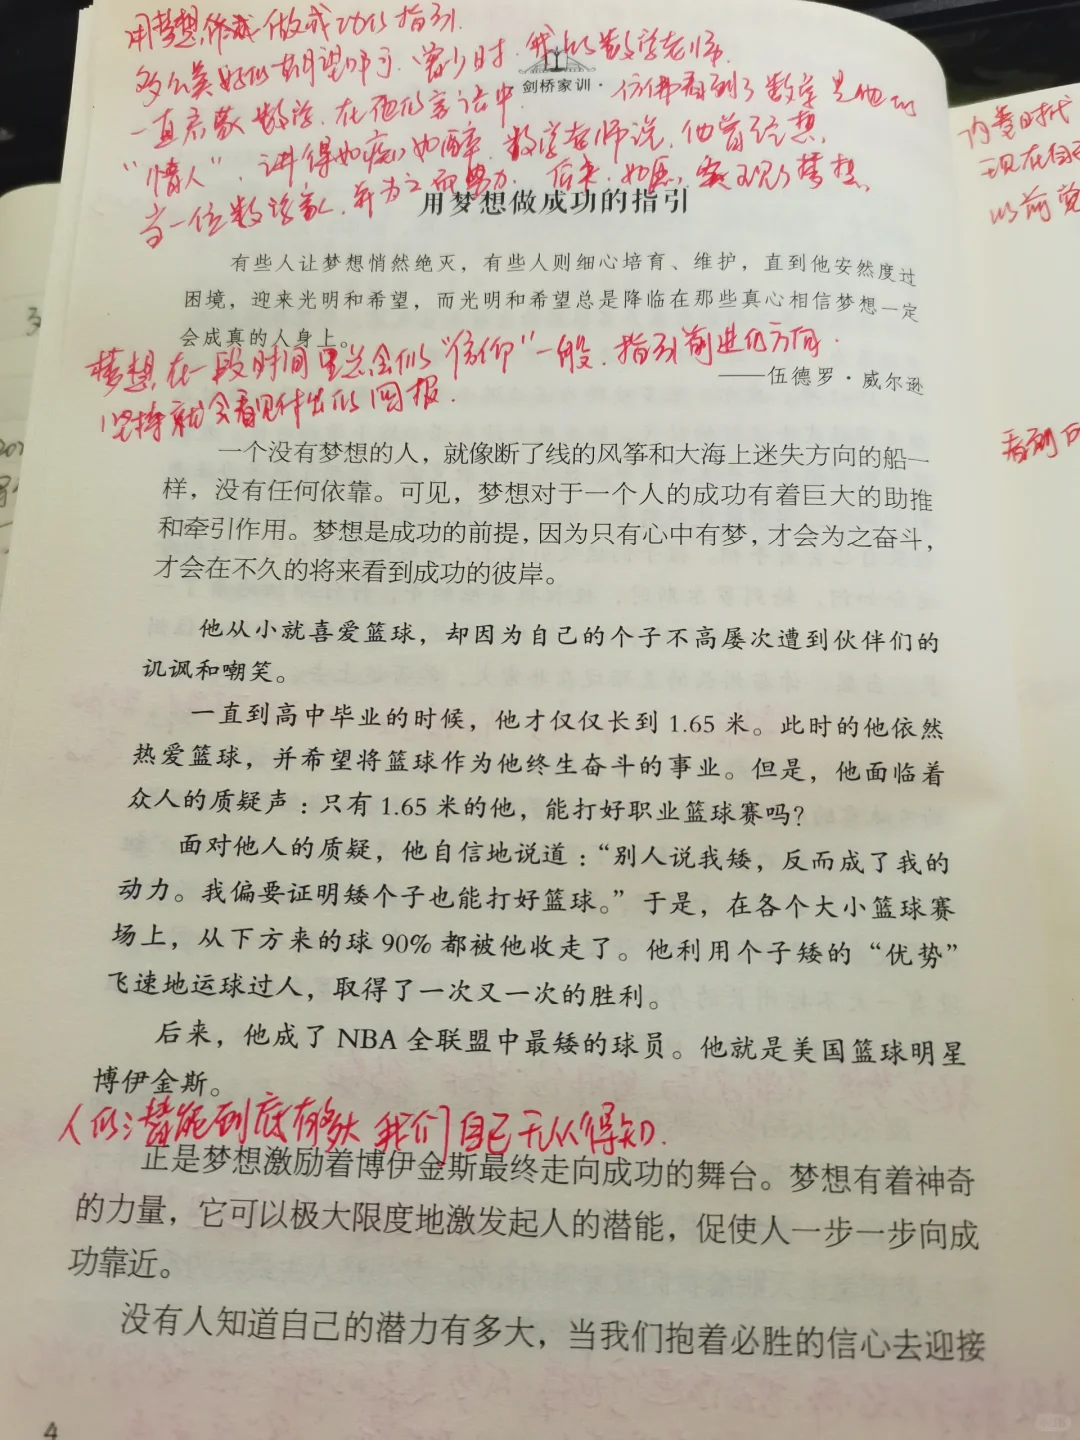 用梦想做成功的指引.
多么美好的期望啊. 曾少时, 我的数学老师.
剑桥家训·
一直启蒙数学, 在他的言语中. 仿佛看到了数学是他的
“情人”, 讲得如痴如醉. 数学老师说, 他曾经想,
当一位数学家, 并为之而努力. 后来, 如愿, 实现了梦想,
用梦想做成功的指引
有些人让梦想悄然绝灭，有些人则细心培育、维护，直到他安然度过
困境，迎来光明和希望，而光明和希望总是降临在那些真心相信梦想一定
会成真的人身上。
——伍德罗·威尔逊
梦想在一段时间里总会似“信仰”一般. 指引前进的方向.
坚持就会看见付出的回报.
一个没有梦想的人，就像断了线的风筝和大海上迷失方向的船一
样，没有任何依靠。可见，梦想对于一个人的成功有着巨大的助推
和牵引作用。梦想是成功的前提，因为只有心中有梦，才会为之奋斗，
才会在不久的将来看到成功的彼岸。
他从小就喜爱篮球，却因为自己的个子不高屡次遭到伙伴们的
讥讽和嘲笑。
一直到高中毕业的时候，他才仅仅长到 1.65 米。此时的他依然
热爱篮球，并希望将篮球作为他终生奋斗的事业。但是，他面临着
众人的质疑声：只有 1.65 米的他，能打好职业篮球赛吗？
面对他人的质疑，他自信地说道：“别人说我矮，反而成了我的
动力。我偏要证明矮个子也能打好篮球。”于是，在各个大小篮球赛
场上，从下方来的球 90% 都被他收走了。他利用个子矮的“优势”
飞速地运球过人，取得了一次又一次的胜利。
后来，他成了 NBA 全联盟中最矮的球员。他就是美国篮球明星
博伊金斯。
人的潜能到底有多大 我们自己无从得知.
正是梦想激励着博伊金斯最终走向成功的舞台。梦想有着神奇
的力量，它可以极大限度地激发起人的潜能，促使人一步一步向成
功靠近。
没有人知道自己的潜力有多大，当我们抱着必胜的信心去迎接
4
内卷时代
现在
以前
看到